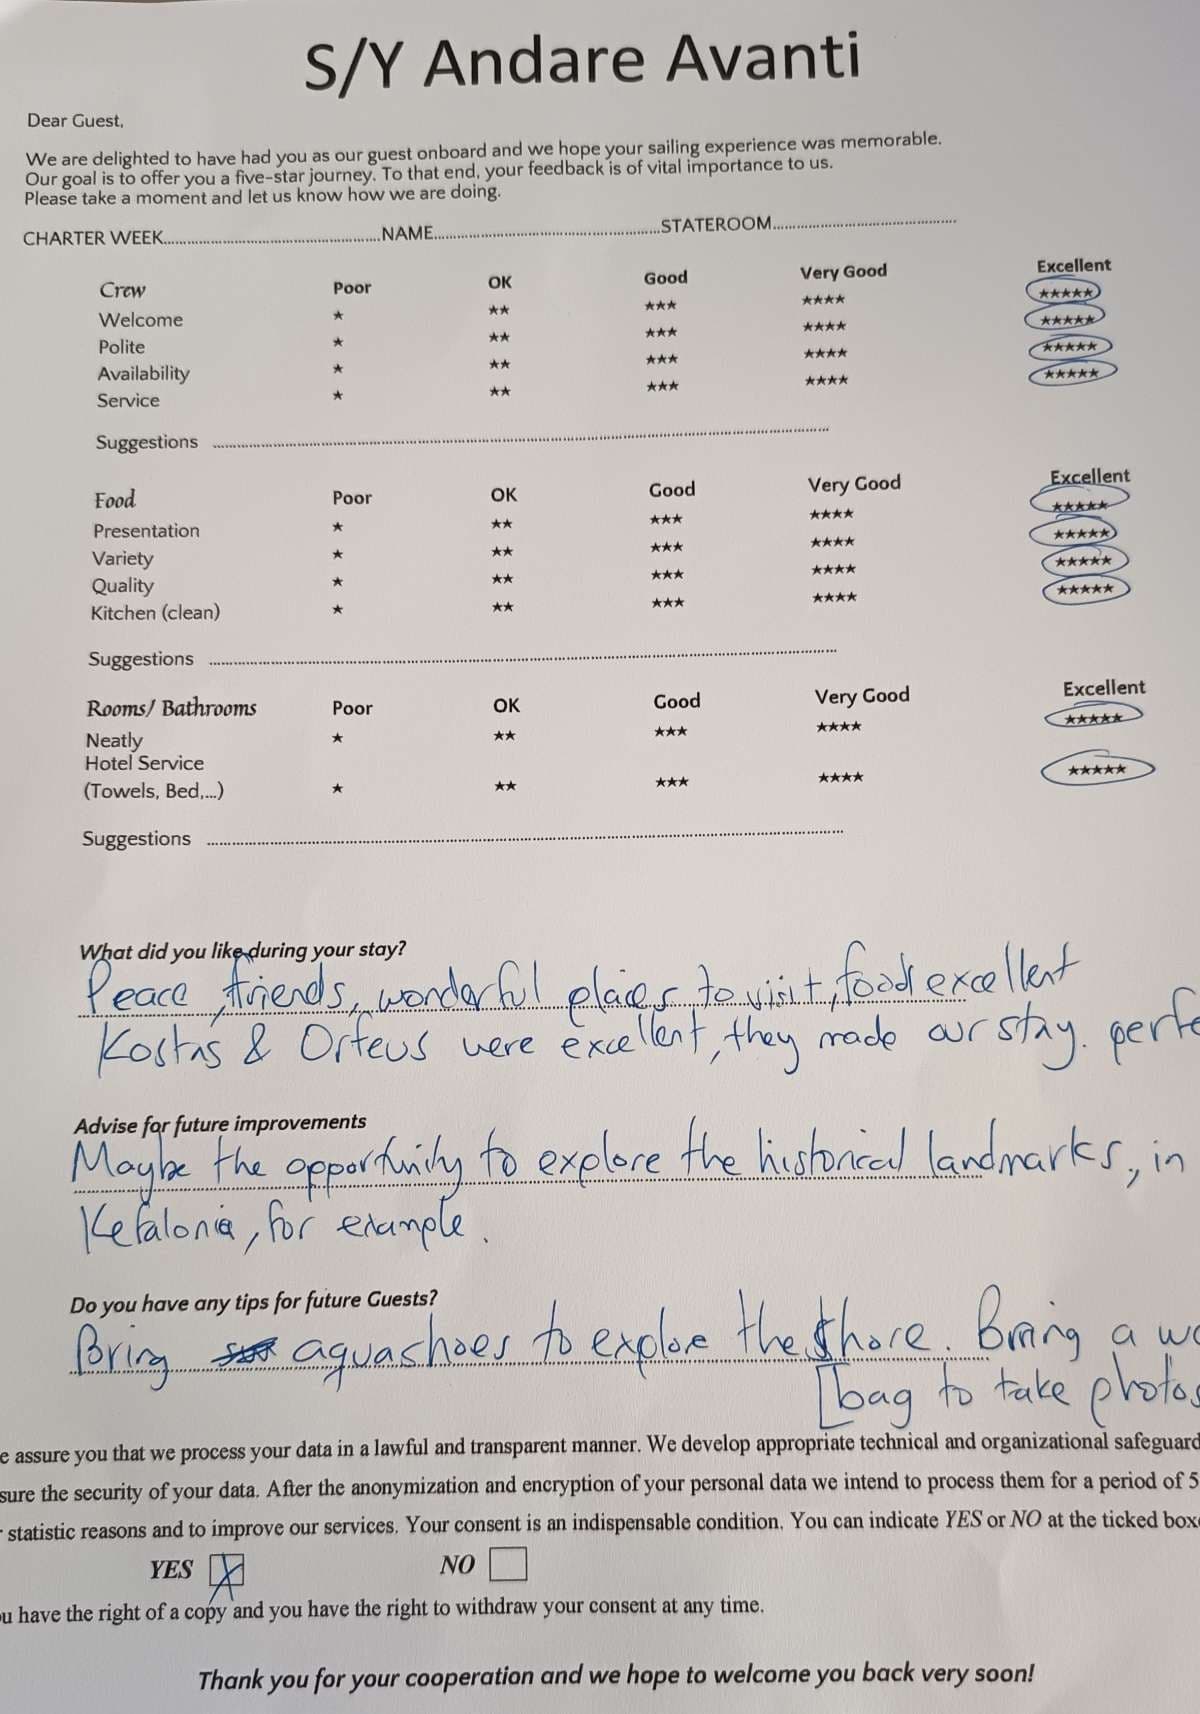 S/Y Andare Avanti
Dear Guest,
We are delighted to have had you as our guest onboard and we hope your sailing experience was memorable.
Our goal is to offer you a five-star journey. To that end, your feedback is of vital importance to us.
Please take a moment and let us know how we are doing.
CHARTER WEEK..........NAME..........STATEROOM..........
Crew Poor OK Good Very Good Excellent
Welcome ★ ★★ ★★★ ★★★★ ★★★★★
Polite ★ ★★ ★★★ ★★★★ ★★★★★
Availability ★ ★★ ★★★ ★★★★ ★★★★★
Service ★ ★★ ★★★ ★★★★ ★★★★★
Suggestions ..........
Food Poor OK Good Very Good Excellent
Presentation ★ ★★ ★★★ ★★★★ ★★★★★
Variety ★ ★★ ★★★ ★★★★ ★★★★★
Quality ★ ★★ ★★★ ★★★★ ★★★★★
Kitchen (clean) ★ ★★ ★★★ ★★★★ ★★★★★
Suggestions ..........
Rooms/ Bathrooms Poor OK Good Very Good Excellent
Neatly ★ ★★ ★★★ ★★★★ ★★★★★
Hotel Service
(Towels, Bed,...) ★ ★★ ★★★ ★★★★ ★★★★★
Suggestions ..........
What did you like during your stay?
Peace, friends, wonderful places to visit, food excellent
Kostas & Orfeus were excellent, they made our stay. perfe
Advise for future improvements
Maybe the opportunity to explore the historical landmarks, in
Kefalonia, for example.
Do you have any tips for future Guests?
Bring aquashoes to explore the shore. Bring a
bag to take photos
e assure you that we process your data in a lawful and transparent manner. We develop appropriate technical and organizational safeguard
sure the security of your data. After the anonymization and encryption of your personal data we intend to process them for a period of 5
statistic reasons and to improve our services. Your consent is an indispensable condition. You can indicate YES or NO at the ticked box
YES X NO
ou have the right of a copy and you have the right to withdraw your consent at any time.
Thank you for your cooperation and we hope to welcome you back very soon!